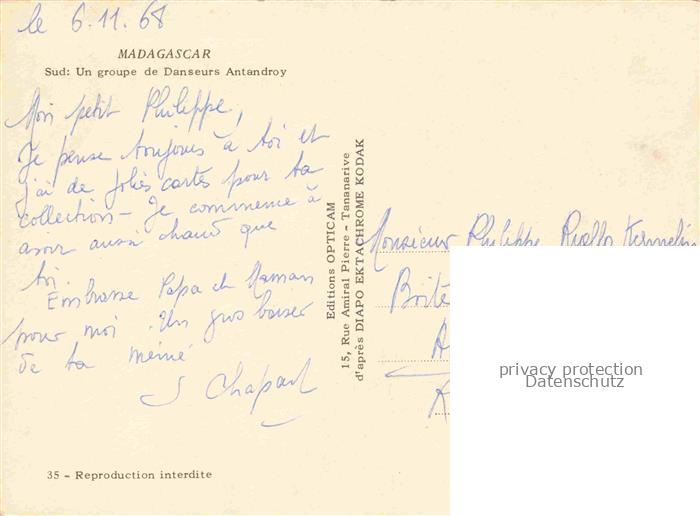 le 6.11.68
MADAGASCAR
Sud: Un groupe de Danseurs Antandroy
Mon petit Philippe,
Je pense toujours à toi et
j'ai de jolies cartes pour ta
collection - Je commence à
avoir aussi chaud que
toi.
Embrasse Papa et Maman
pour moi. Un gros baiser
de ta mémé
S Chapart
35 - Reproduction interdite
Editions OPTICAM
15, Rue Amiral Pierre - Tananarive
d'après DIAPO EKTACHROME KODAK
Monsieur Philippe
Boîte
privacy protection
Datenschutz